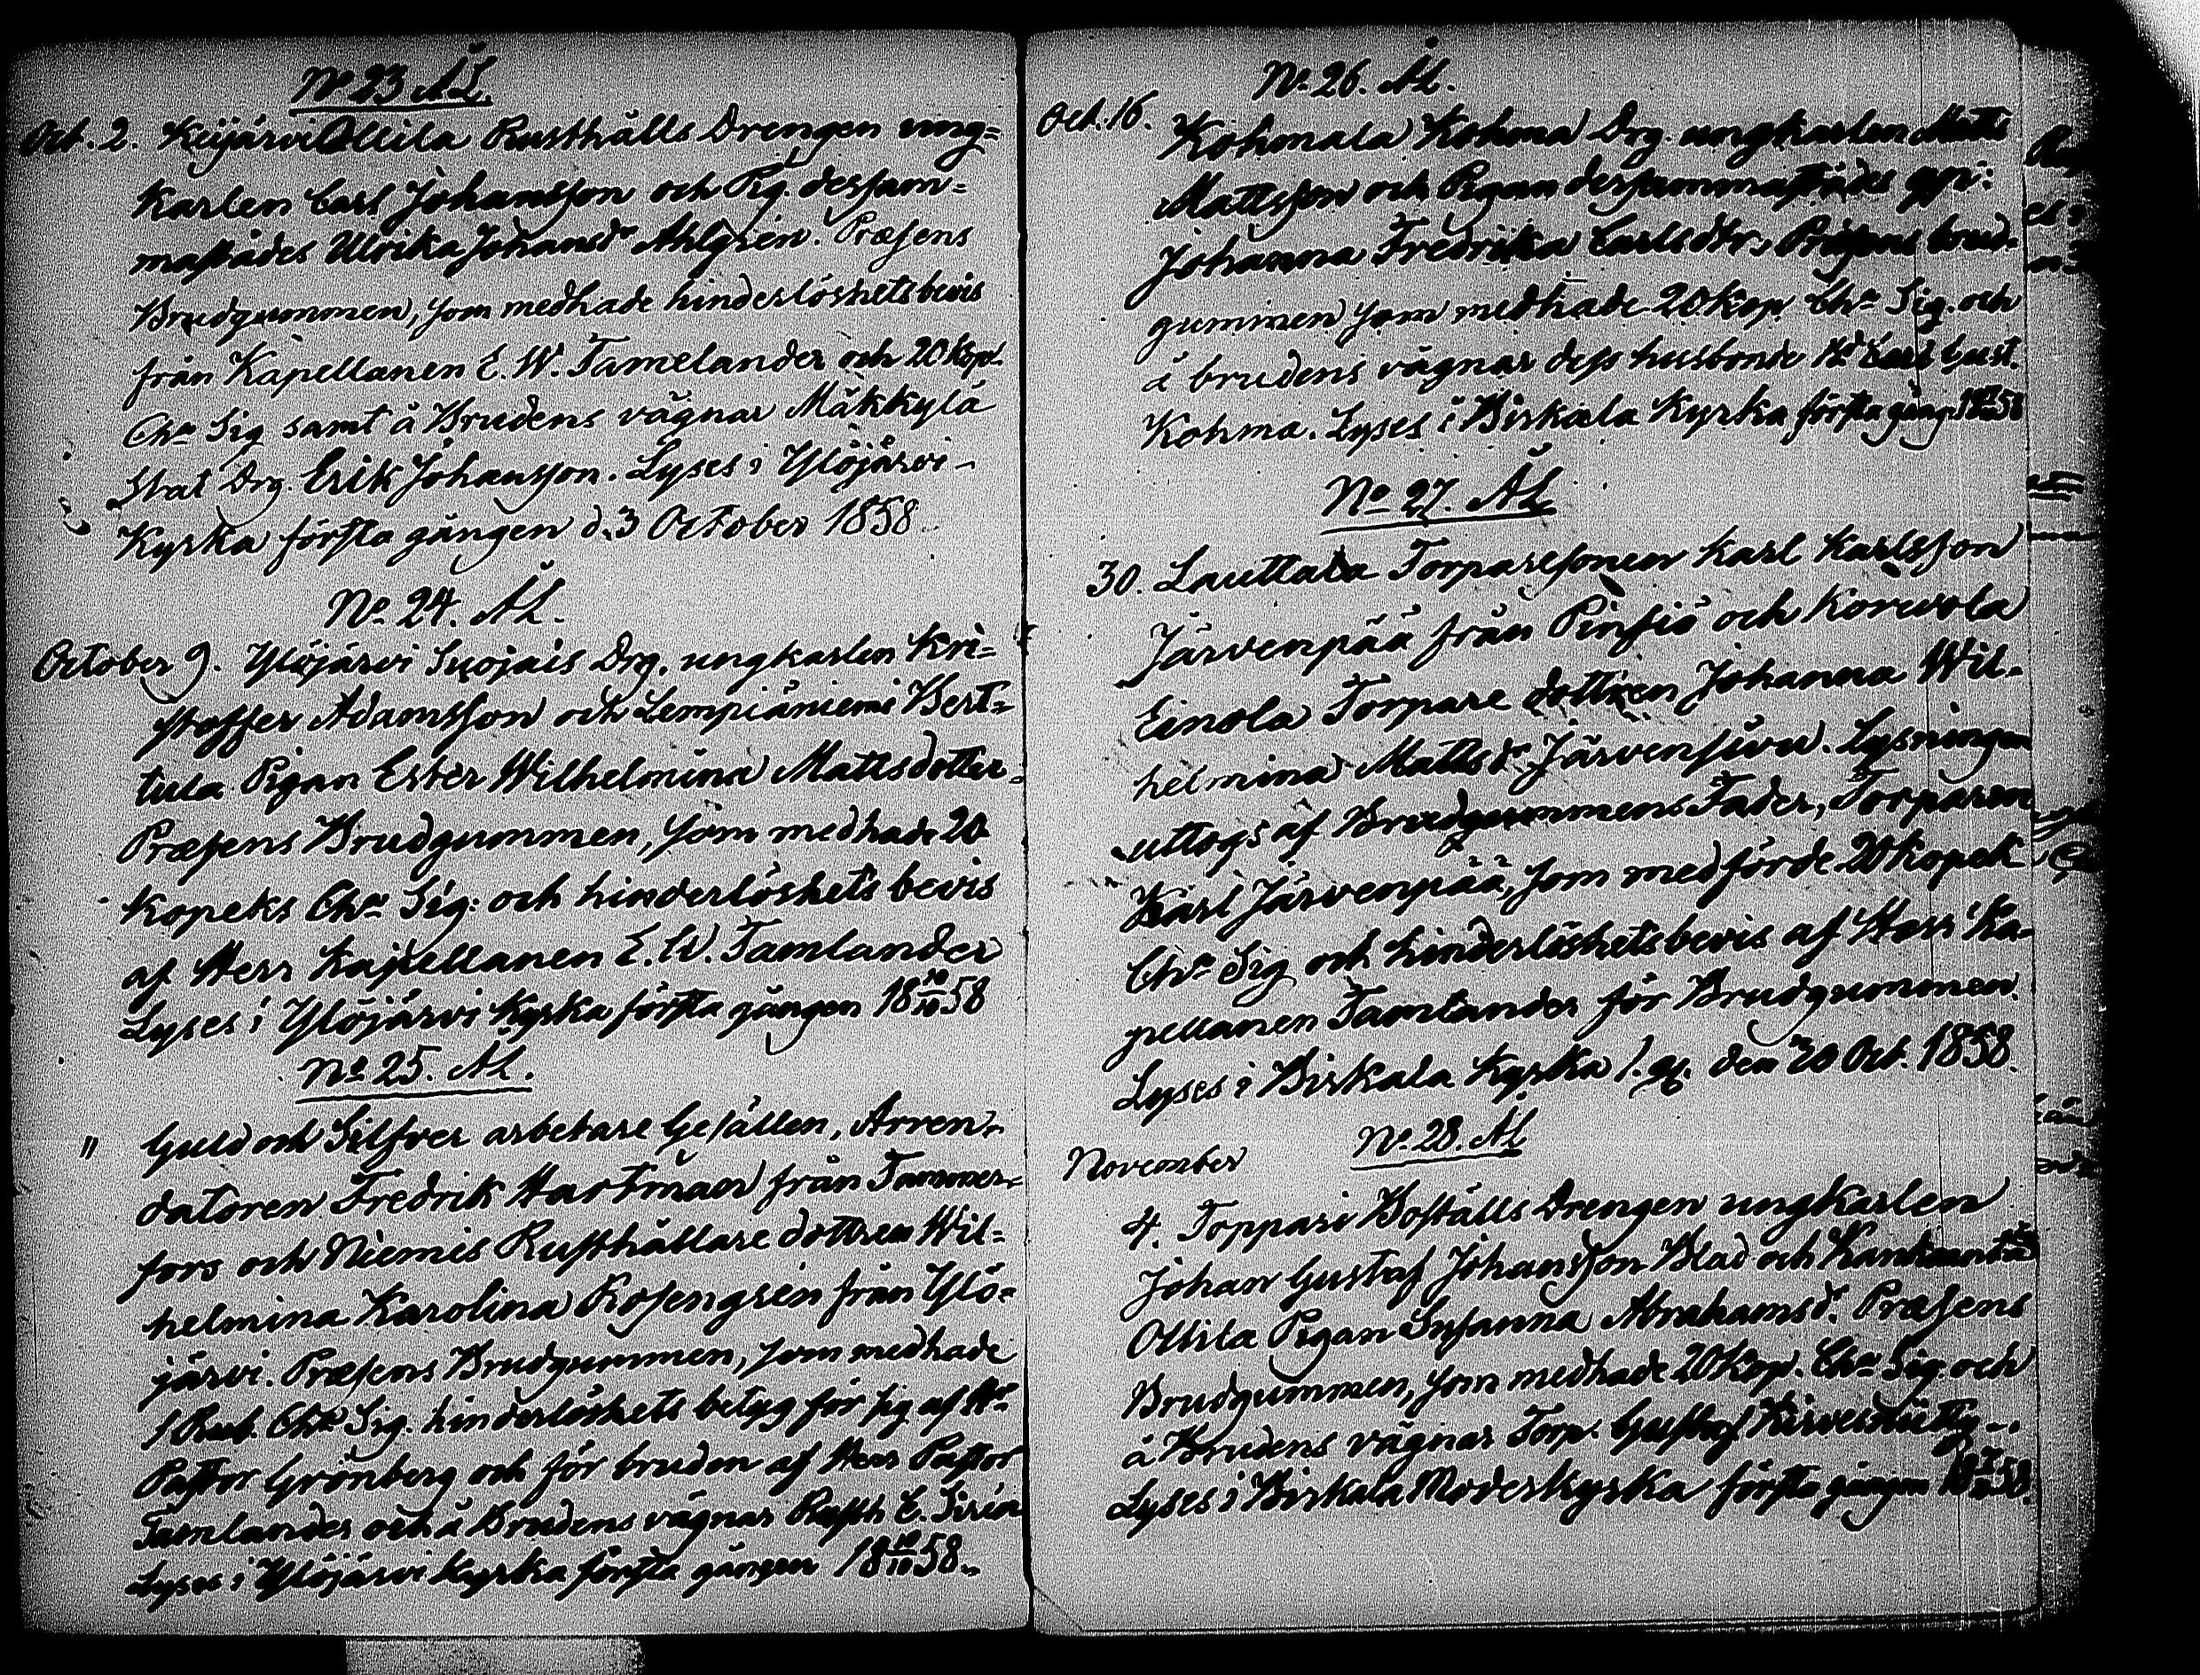 No 23 ÅL.
Oct. 2. Keijärvi Ollila Rusthålls Drengen ung=
karlen Carl Johansson och Pig. dersam=
mastädes Ulrika Johansdr Ahlgren. Præsens
Brudgummen, som medhade hinderlöshetsbevis
från Kapellanen E. W. Tamelander och 20 Kop.
Chn Sig samt å Brudens vägnar Mäkkylä
Stat Drg. Erik Johansson. Lyses i Ylöjärvi
Kyrka första gången d. 3 October 1858.
No 24. ÅL.
October 9. Ylöjärvi Suojais Drg. ungkarlen Kri=
stoffer Adamsson och Lempiäniemi Bert=
tula Pigan Ester Wilhelmina Mattsdotter.
Præsens Brudgummen, som medhade 20
Kopeks Chr Sig: och hinderlöshets bevis
af Herr Kapellanen E. W. Tamlander
Lyses i Ylöjärvi Kyrka första gången 18 10/10 58
No 25. ÅL.
" Guld och Silfver arbetare Gesällen, Arren=
datoren Fredrik Hartman från Tammer=
fors och Niemis Rusthållare dottren Wil=
helmina Karolina Rosengren från Ylö=
järvi. Præsens Brudgummen, som medhade
1 Rub. Chr Sig. hinderlöshets betyg för sig af Hr
Pastor Grönberg och för bruden af Herr Pastor
Tamlander och å Brudens vägnar Rusth E. Siren
Lyses i Ylöjärvi Kyrka första gången 18 10/10 58.
No 26. ÅL.
Oct. 16. Kohmala Kohma Drg. ungkarlen Matts
Mattsson och Pigan dersammastädes
Johanna Fredrika Carlsdtr, Præsens brud-
gummen som medhade 20 Kop Chn Sig. och
å brudens vägnar dess husbonde Hd Karl Gust.
Kohma. Lyses i Birkala Kyrka första gång. 18 58
No 27. ÅL
30. Lauttala Torparesonen Karl Karlsson
Järvenpää från Pinsiö och Korwola
Einola Torpare dottren Johanna Wil-
helmina Mattsdr Järvensivu. Lysningen
uttogs af Brudgummens Fader, Torparen
Karl Järvenpää, som medförde 20 kopek
Chr Sig och hinderlöshetsbevis af Herr Ka-
pellanen Tamlander för Brudgummen.
Lyses i Birkala Kyrka 1. g. den 30 Oct. 1858.
No 28. ÅL
November
4. Toppari Boställs Drengen ungkarlen
Johan Gustaf Johansson Blad och
Ollila Pigan Susanna Abrahamsdr. Præsens
Brudgummen, som medhade 20 Kop. Chn Sig. och
å Brudens vägnar Torp. Gustaf
Lyses i Birkala Moderkyrka första gången 18 58.